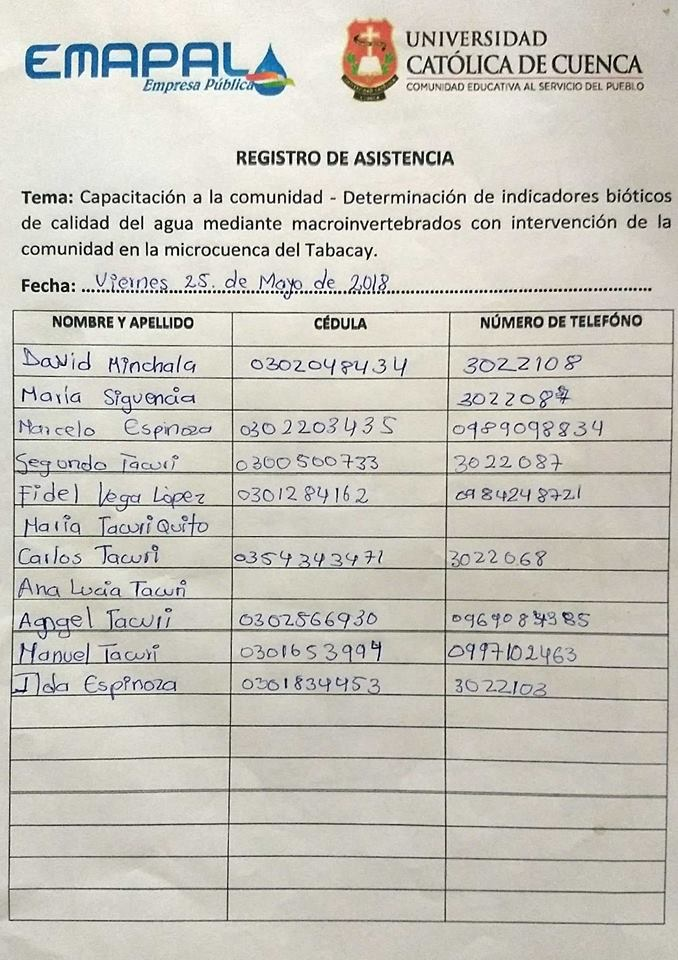 EMAPAL
Empresa Pública
UNIVERSIDAD
CATÓLICA DE CUENCA
COMUNIDAD EDUCATIVA AL SERVICIO DEL PUEBLO
REGISTRO DE ASISTENCIA
Tema: Capacitación a la comunidad - Determinación de indicadores bióticos
de calidad del agua mediante macroinvertebrados con intervención de la
comunidad en la microcuenca del Tabacay.
Fecha: Viernes 25. de Mayo de 2018
NOMBRE Y APELLIDO CÉDULA NÚMERO DE TELEFÓNO
David Minchala 0302048434 3022108
María Siguencia 3022087
Marcelo Espinoza 0302203435 0989098834
Segundo Tacuri 0300500733 3022087
Fidel Vega López 0301284162 0984248721
María Tacuri Quito
Carlos Tacuri 0354343471 3022068
Ana Lucía Tacuri
Tacuri 0302566930
Manuel Tacuri 0301653994 0997102463
Ilda Espinoza 0301834453 3022103